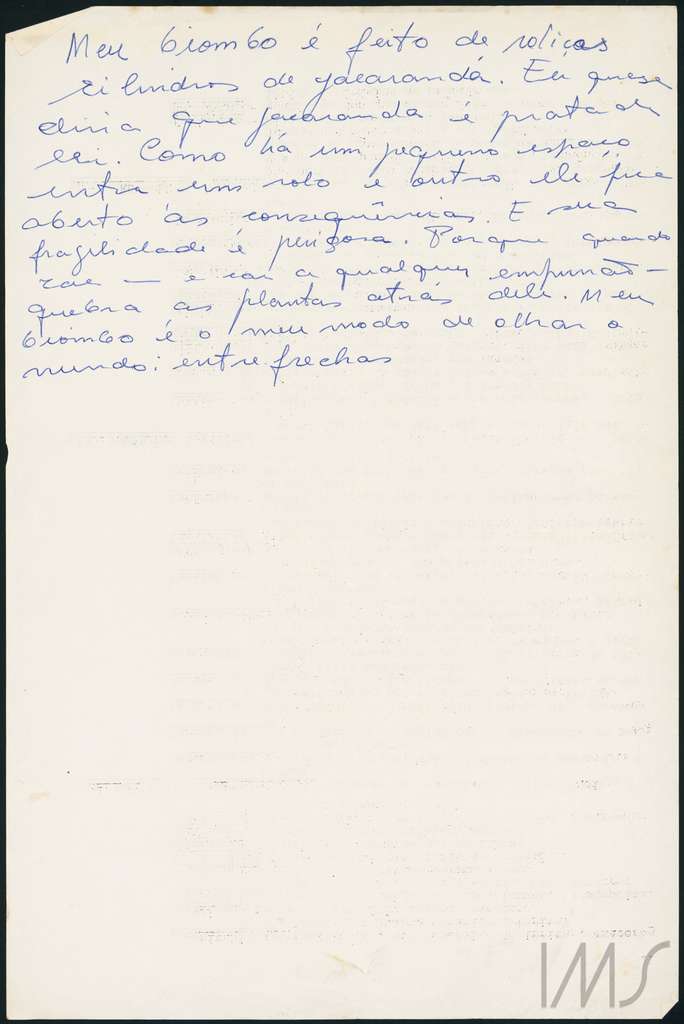 Meu biombo é feito de roliços
cilindros de jacarandá. Eu quase
diria que jacarandá é prata de
lei. Como há um pequeno espaço
entre um rolo e outro ele fica
aberto às consequências. E sua
fragilidade é perigosa. Porque quando
cae — e cai a qualquer empurrão —
quebra as plantas atrás dele. Meu
biombo é o meu modo de olhar o
mundo: entre frechas
IMS